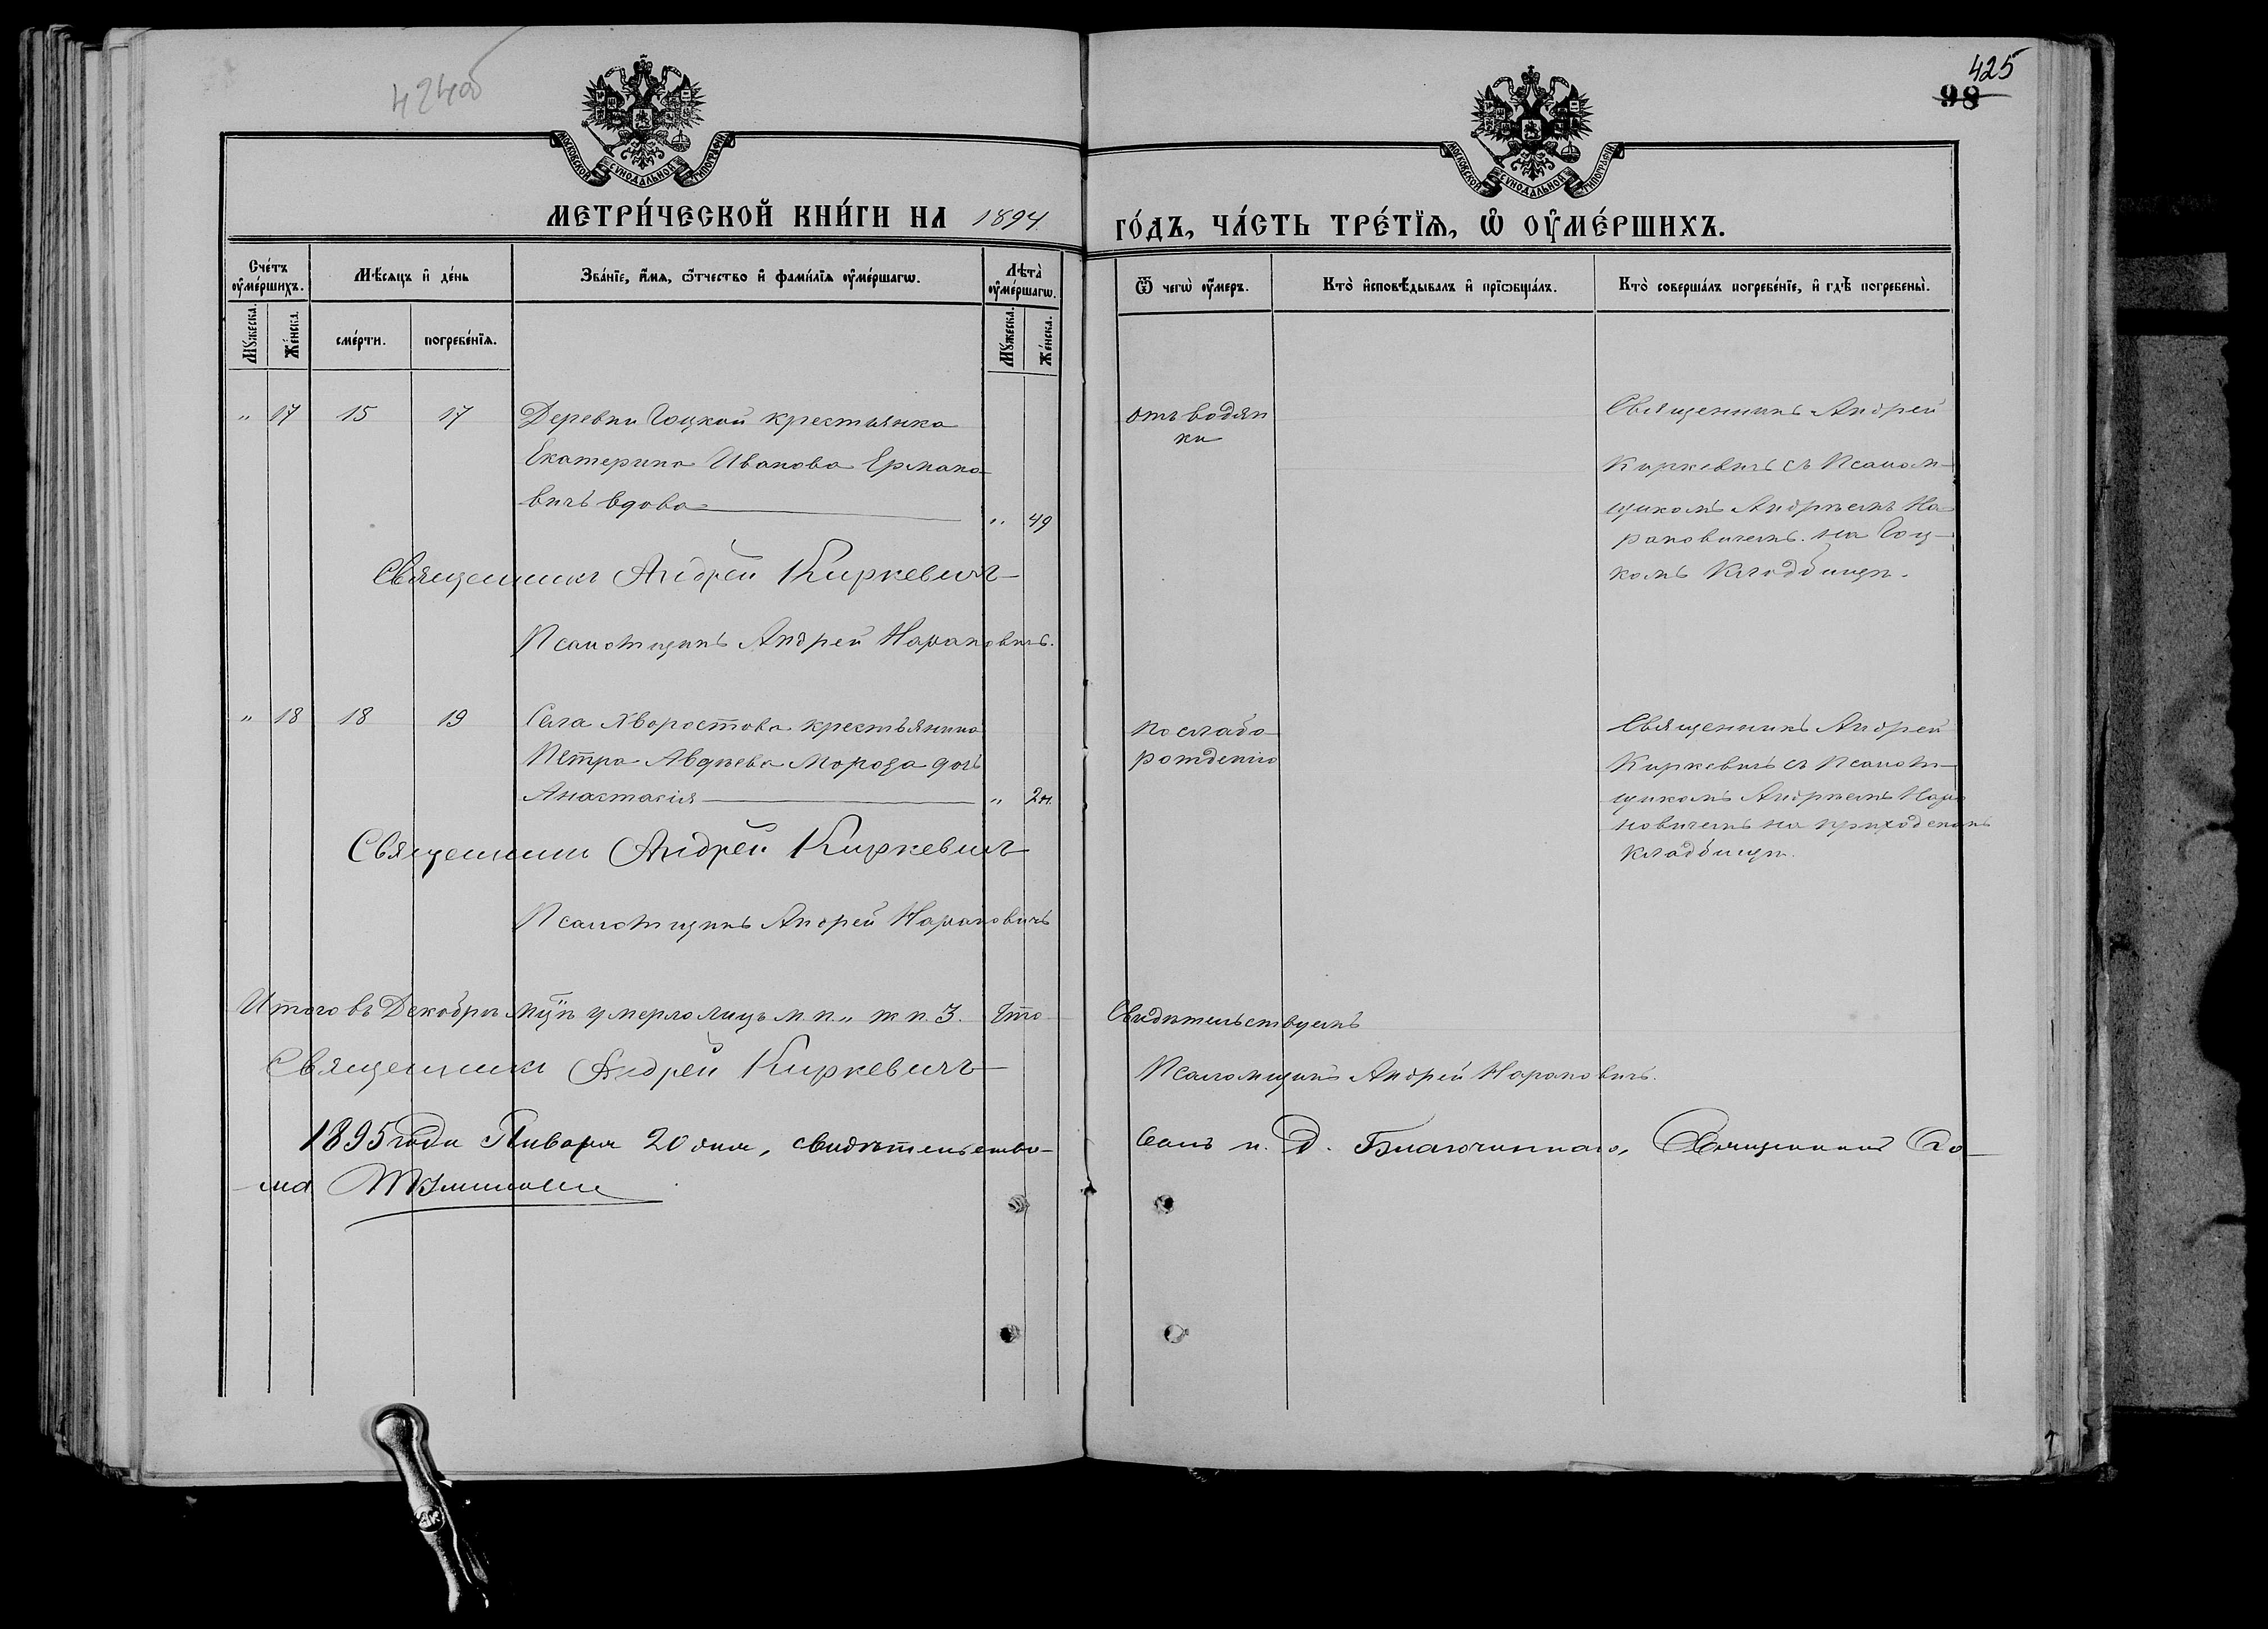 424об
425
98
МОСКОВСКОЙ СѴНОДАЛЬНОЙ ТИПОГРАФІИ
МОСКОВСКОЙ СѴНОДАЛЬНОЙ ТИПОГРАФІИ
МЕТРИ́ЧЕСКОЙ КНИ́ГИ НА 1894
ГО́ДЪ, ЧА́СТЬ ТРЕ́ТЇѦ, Ѡ҆ ОУ҆МЕ́РШИХЪ.
Сче́тъ оу҆ме́ршихъ.
Мѣ́сѧцъ и҆ де́нь
Зва́нїе, и҆́мѧ, ѻ҆́тчество и҆ фами́лїѧ оу҆ме́ршагѡ.
Лѣта̀ оу҆ме́ршагѡ.
Ѿ чегѡ̀ оу҆́меръ.
Кто̀ и҆сповѣ́дывалъ и҆ прїѡбща́лъ.
Кто̀ соверша́лъ погребе́нїе, и҆ гдѣ̀ погребены̀.
Мꙋ́жеска.
Же́нска.
сме́рти.
погребе́нїѧ.
Мꙋ́жеска.
Же́нска.
" 17 15 17 Деревни Гоцкой крестьянка
Екатерина Иванова Ермако-
вичъ вдова " 49
отъ водян
ки
Священникъ Андрей
Киркевичъ съ Псалом-
щикомъ Андреемъ На
рановичемъ. на Гоц-
комъ Кладбищѣ.
Священникъ Андрей Киркевичъ
Псаломщикъ Андрей Нарановичъ.
" 18 18 19 Села Хворостова крестьянина
Петра Авдѣева Мороза дочь
Анастасія " 2 н.
по слабо
рожденію
Священникъ Андрей
Киркевичъ съ Псалом-
щикомъ Андреемъ Нара
новичемъ на приходскомъ
кладбищѣ.
Священникъ Андрей Киркевичъ
Псаломщикъ Андрей Нарановичъ
Итого въ Декабрѣ мцѣ умерло лицъ м. п. " ж. п. 3. Что
Свидѣтельствуемъ
Священникъ Андрей Киркевичъ
Псаломщикъ Андрей Нарановичъ.
1895 года Января 20 дня, свидѣтельство-
валъ и. д. Благочиннаго, Священникъ